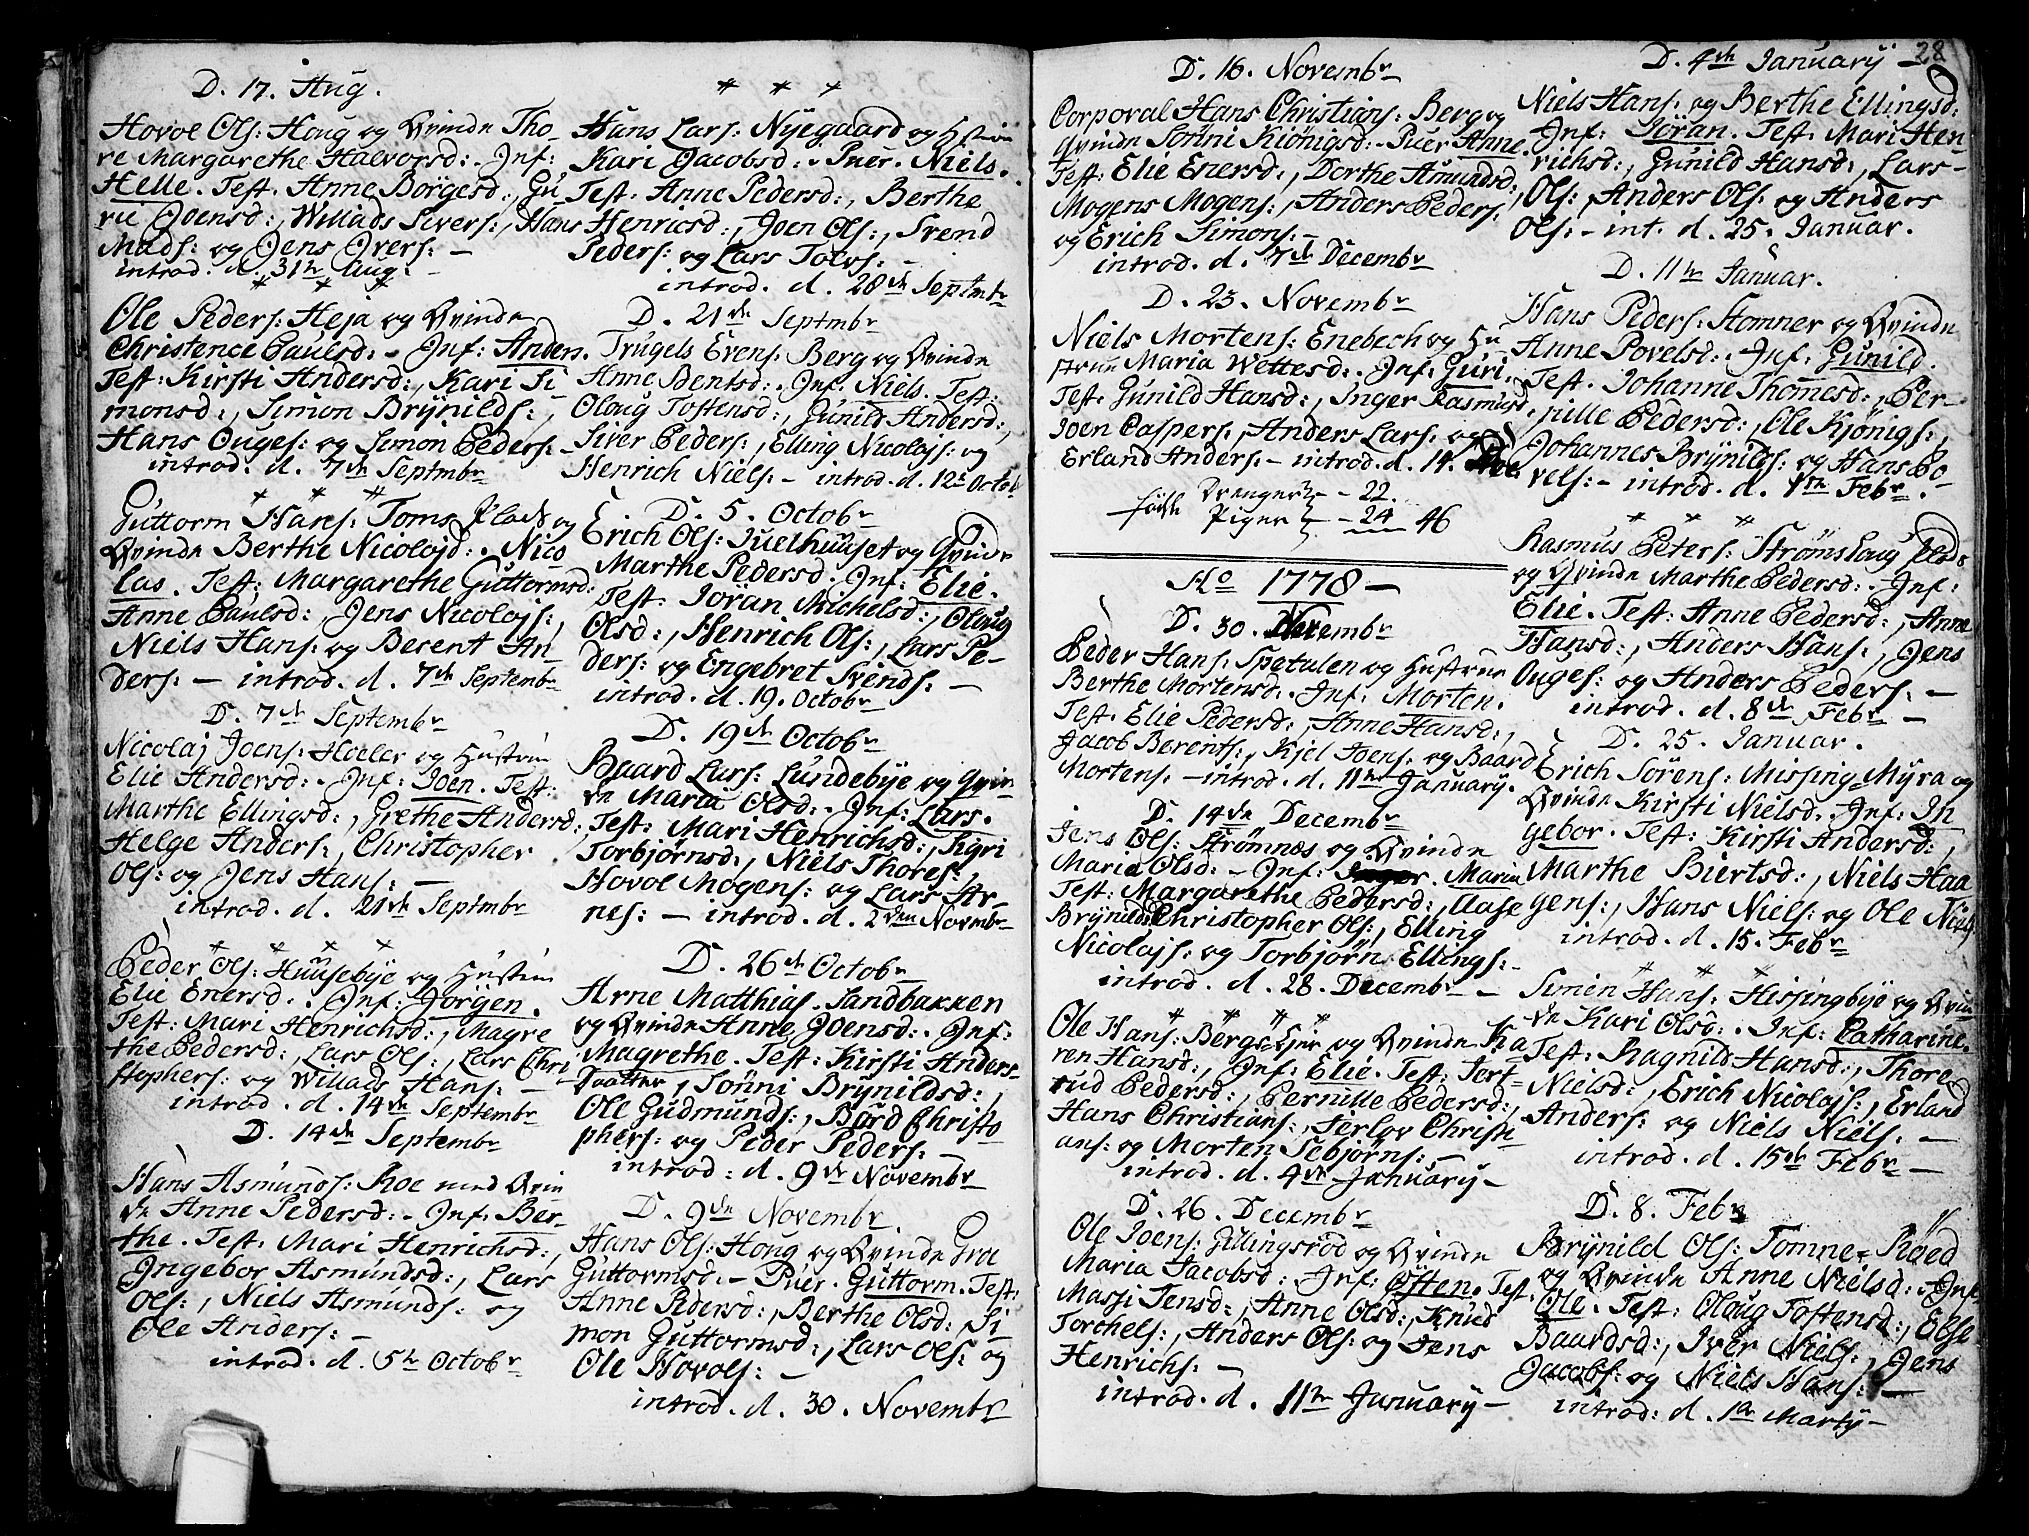 D. 17. Aug.
Hovol Ols: Houg og Qvinde Tho-
re Margarethe Halvorsd: - Inf:
Helle. Test. Anne Börgesd:, Gu-
rie Joensd:, Willads Sivers:, Hans
Mads: og Jens Ivers: -
introd. d. 31te Aug: -
Ole Peders: Heja og Qvinde
Christence Paulsd: - Inf: Anders.
Test: Kirsti Andersd:, Kari Si
monsd:, Simon Brÿnilds:,
Hans Ouges: og Simon Peders: -
introd. d. 7de Septmbr
Guttorm Hans: Toms Plads og
Qvinde Berthe Nicolajd: . Nico
las. Test: Margarethe Guttormsd:
Anne Paulsd:, Jens Nicolajs:,
Niels Hans: og Berent An-
ders: - introd. d. 7de Septembr
D. 7de Septembr
Nicolaj Joens: Holer og Hustru
Elie Andersd: . Inf: Joen. Test:
Marthe Ellingsd:, Grethe Andersd:,
Helge Anders:, Christopher
Ols: og Jens Hans: -
introd. d. 21de Septmbr
Peder Ols: Huusebÿe og Hustru
Elie Enersd: . Inf: Jörgen.
Test: Mari Henrichsd:, Magre
the Pedersd:, Lars Ols:, Lars Chri
stophers: og Willads Hans: -
introd. d. 14de Septembr
D. 14de Septembr
Hans Asmunds: Roe med Qvin
de Anne Pedersd: - Inf: Ber-
the. Test. Mari Henrichsd:,
Ingebor Asmundsd:, Lars
Ols:, Niels Asmunds: og
Ole Anders: -
introd. d. 5te Octobr
Hans Lars: Nÿegaard og Hustrue
Kari Jacobsd: . Puer. Niels.
Test. Anne Pedersd:, Berthe
Henricsd:, Joen Ols:, Svend
Peders: og Lars Tolvs: -
introd. d. 28de Septmbr
D. 21de Septmbr
Trugels Evens: Berg og Qvinde
Anne Bentsd: . Inf. Niels. Test:
Oloug Tostensd:, Gunild Andersd:,
Siver Peders:, Elling Nicolajs: og
Henrich Niels: - introd. d. 12te Octob
D. 5. Octobr
Erich Ols: Juelhuuset og Qvinde
Marthe Pedersd. Inf: Elie.
Test: Jöran Michelsd:, Oloug
Olsd:, Henrich Ols:, Lars Pe-
ders: og Engebret Svends: -
introd. d. 19. Octobr
D. 19de Octobr
Baard Lars: Lundebÿe og Qvin-
de Maria Olsd: - Inf: Lars.
Test: Mari Henrichsd:, Kyri
Torbjörnsd:, Niels Thores:,
Hovol Mogens: og Lars Ar-
nes: - introd. d. 2den Novmbr
D. 26de Octobr
Arne Matthias. Sandbakken
og Qvinde Anne Joensd: . Inf:
Magrethe. Test: Kirsti Anders-
Daatter, Sönni Brÿnildsd:,
Ole Gudmunds:, Bord Christo
phers: og Peder Peders: -
introd: d. 9de Novembr
D. 9de Novembr.
Hans Ols: Houg og Qvinde Groe
Guttormsd: - Puer. Guttorm. Test:
Anne Pedersd:, Berthe Olsd:, Si
mon Guttormsd:, Lars Ols: og
Ole Hovols: -
introd. d. 30. Novembr
D. 16. Novembr
Corporal Hans Christians: Berg og
Qvinde Sönni Kiönigsd: - Puer Anne.
Test: Elie Enersd:, Dorthe Asmundsd:,
Mogens Mogens:, Anders Peders:
og Erich Simons: -
introd. d. 7de Decembr
D. 23. Novembr
Niels Mortens: Enebech og Hu
strue Maria Wettesd: . Inf: Guri.
Test: Gunild Hansd:, Inger Rasmusd.
Joen Caspers:, Anders Lars: og
Erland Anders: - introd. d. 14. Dec.
födte Drenger - 22.
Piger - 24 46
Ao 1778 -
D. 30. Novembr
Peder Hans: Spetalen og Hustrue
Berthe Mortensd: . Inf: Morten.
Test. Elie Pedersd:, Anne Hansd:,
Jacob Berents:, Kjel Joens: og Baard
Mortens: - introd. d. 11te Januarÿ.
D. 14de Decembr
Jens Ols: Strömnæs og Qvinde
Maria Olsd: - Inf: Inger. Maria
Test: Margarethe Pedersd:, Aase
Brÿnildsd Christopher Ols:, Elling
Nicolajs: og Torbjörn Ellings: -
introd. d. 28. Decembr -
Ole Hans: Bergs-Ejer og Qvinde Ka
ren Hansd:, Inf: Elie. Test: Jert-
rud Pedersd:, Pernille Pedersd:,
Hans Christians:, Ferlov Christi
ans: og Morten Sebjörns: -
introd. d. 4de Januarÿ -
D. 26. Decembr
Ole Joens: Gillingsröd og Qvinde
Maria Jacobsd: . Inf: Östen. Test:
Massi Jensd:, Anne Olsd:, Knud
Torchels:, Anders Ols: og Jens
Henrichs: -
introd. d. 11te Januarÿ -
28
D. 4de Januarÿ -
Niels Hans: og Berthe Ellingsd:
Inf: Jöran. Test: Mari Hen-
richsd:, Gunild Hansd:, Lars-
Ols:, Anders Ols: og Anders
Ols: - int. d. 25. Januar.
D. 11te Januar.
Hans Peders: Stomner og Qvinde
Anne Povelsd: . Inf: Gunild.
Test. Johanne Thomesd:, Per-
nille Pedersd:, Ole Kjönigs:,
Johannes Brÿnilds: og Hans Po-
vels: - introd. d. 1ste Febr.
Rasmus Peters: Ströms Laug Plds
og Qvinde Marthe Pedersd: . Inf:
Elie. Test: Anne Pedersd:, Anne
Hansd:, Anders Hans:, Jens
Ouges: og Anders Peders: -
introd. d. 8de Febr -
D. 25. Januar.
Erich Sörens: Missing-Mÿra og
Qvinde Kirsti Nielsd: . Inf: In
gebor. Test: Kirsti Andersd:,
Marthe Biertsd:, Niels Haa
gens:, Hans Niels: og Ole Niels
introd. d. 15. Febr
Simen Hans: Hissingbÿe og Qvin
de Kari Olsd: . Inf: Catharine.
Test: Ragnild Hansd:, Thore
Nielsd:, Erich Nicolajs:, Erland
Anders: og Niels Niels: -
introd. d. 15de Febr -
D. 8. Febr
Brÿnild Ols: Tomne-Röed
og Qvinde Anne Nielsd: . Inf:
Ole. Test: Oloug Tostensd:, Else
Baardsd:, Iver Niels:, Jens
Jacobs: og Niels Hans: -
introd: d. 1te Martÿ -